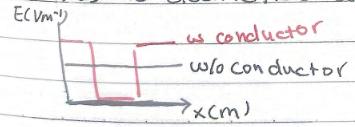 E(Vm⁻¹)
w conductor
w/o conductor
x(m)